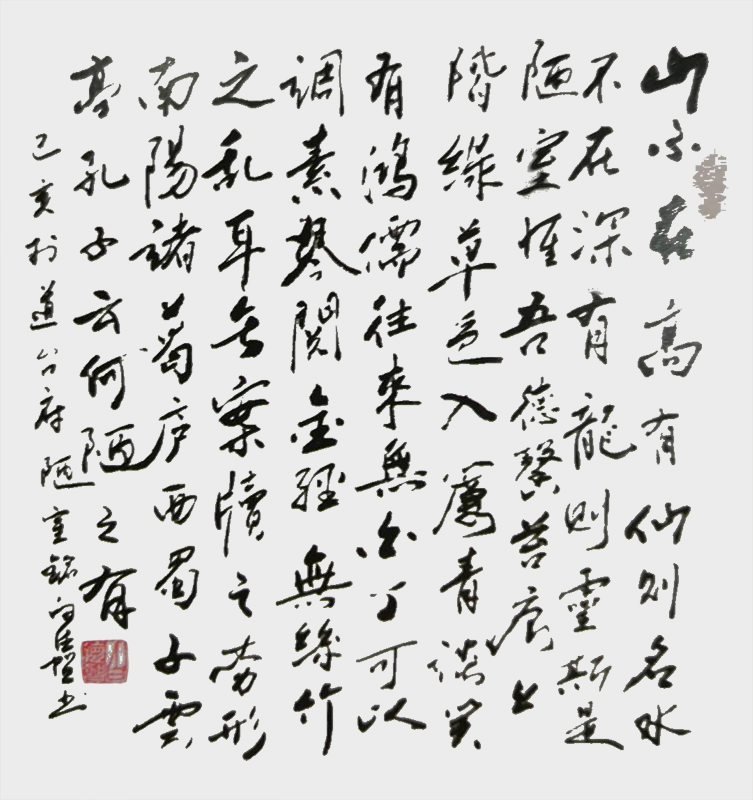 山不在高有仙则名水
不在深有龍则靈斯是
陋室惟吾德馨苔痕上
階緑草色入簾青談笑
有鴻儒往來無白丁可以
調素琴閲金經無絲竹
之乱耳无案牘之劳形
南陽諸葛庐西蜀子雲
亭孔子云何陋之有
己亥於道台府陋室銘书